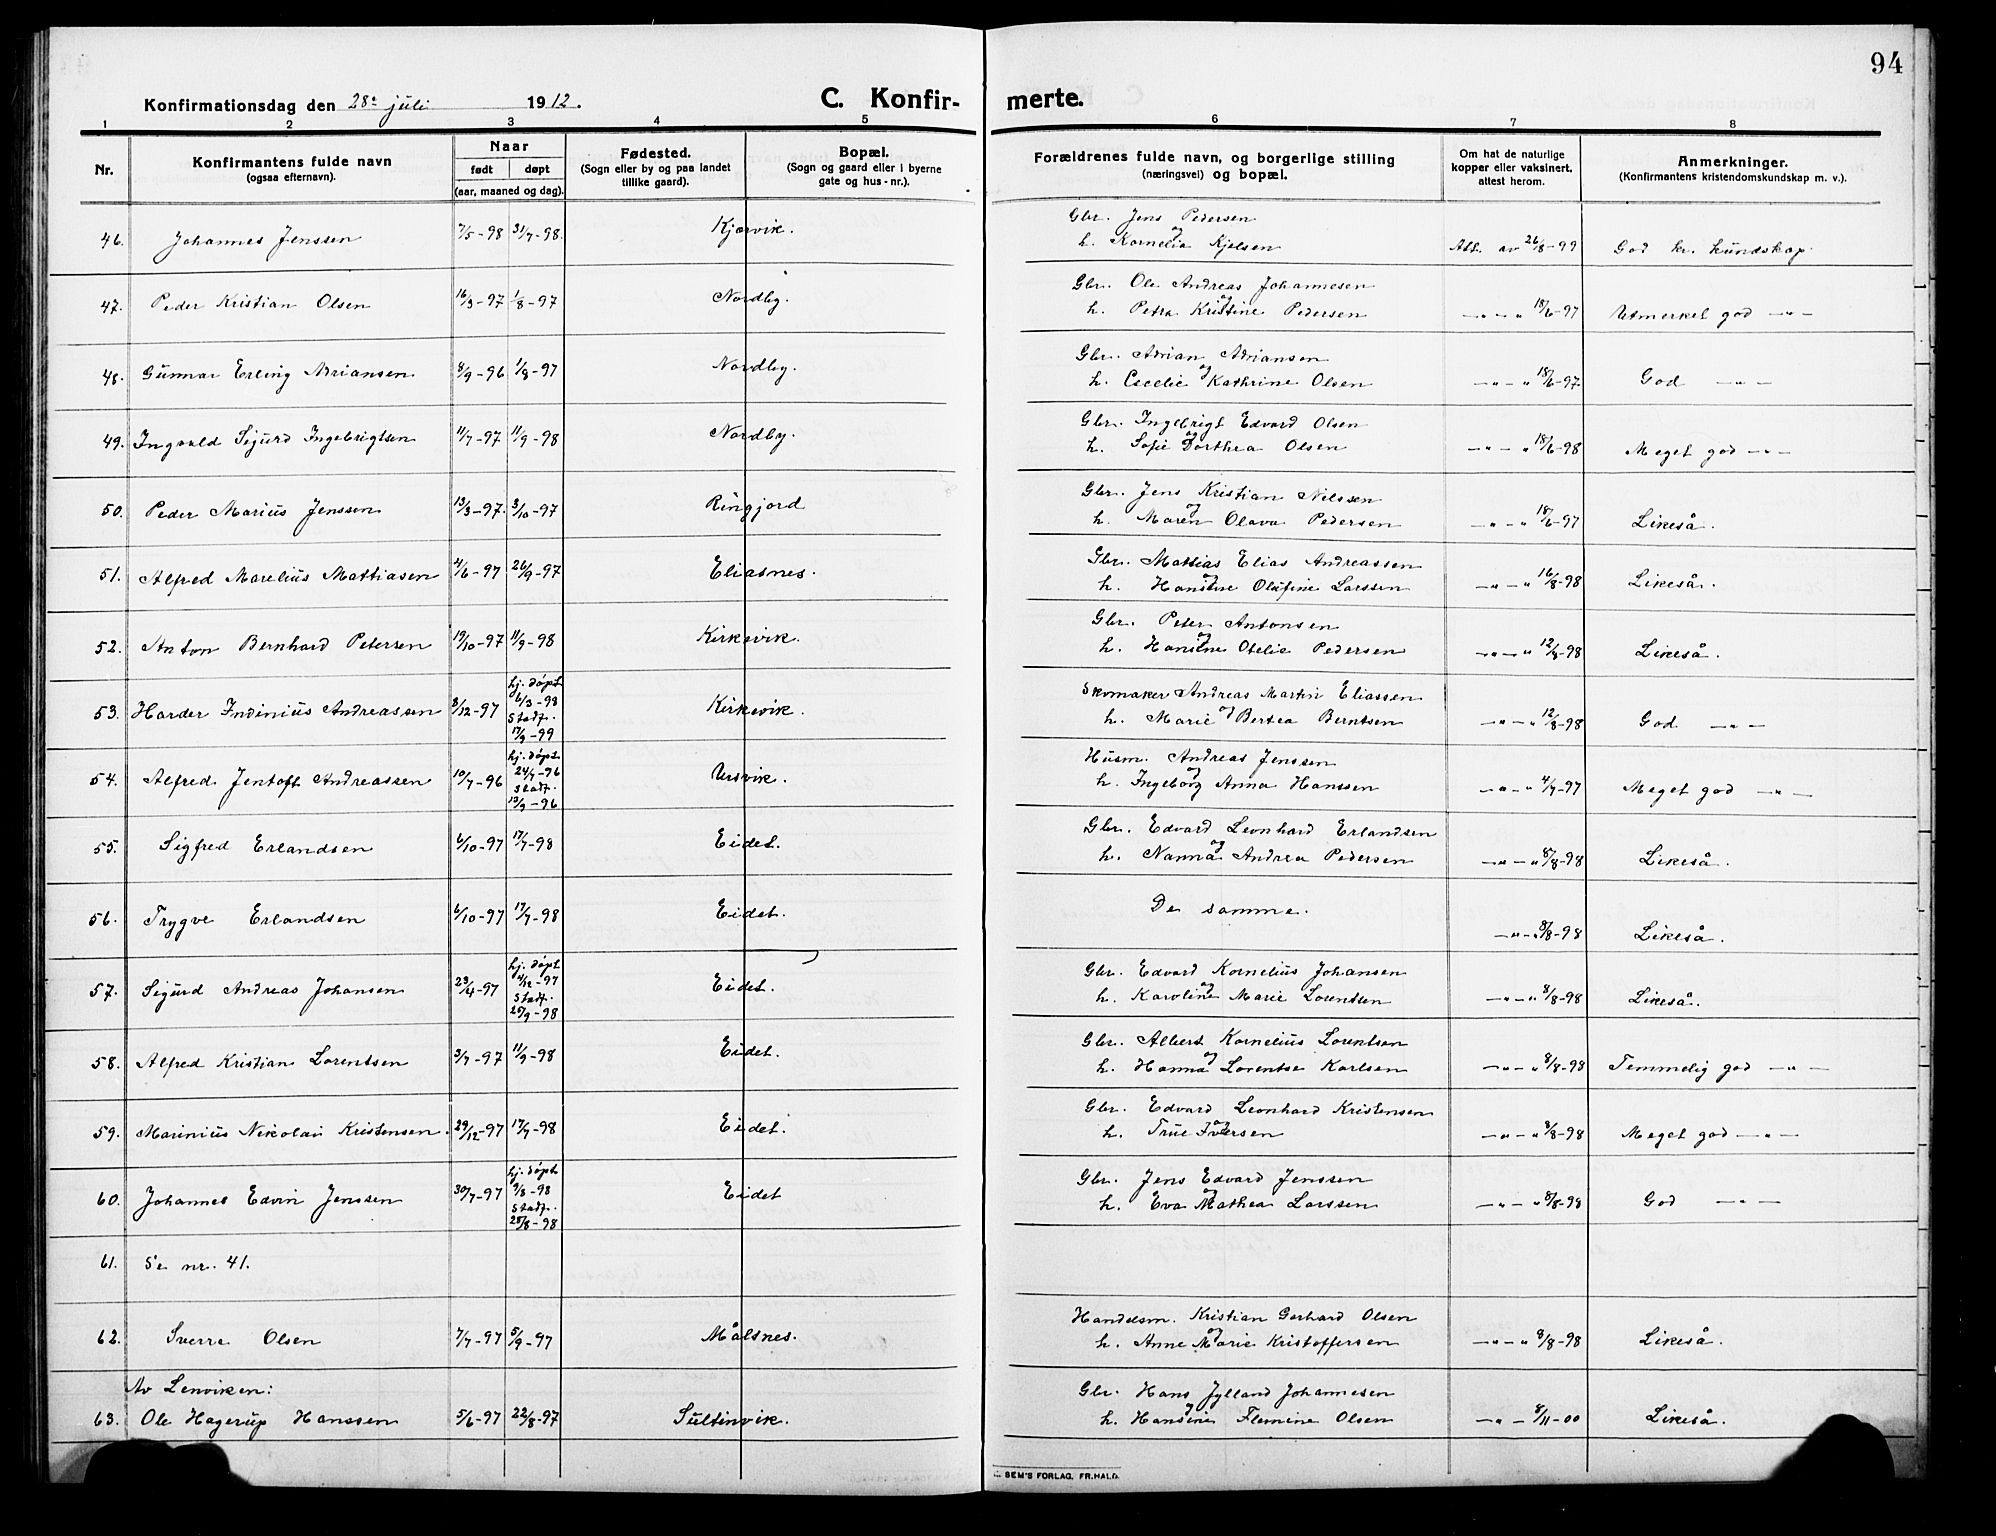 94
Konfirmationsdag den 28de juli 1912.
C. Konfir-
merte.
1 2 3 4 5
6 7 8
Nr.
Konfirmantens fulde navn
(ogsaa efternavn).
Naar
født døpt
(aar, maaned og dag).
Fødested.
(Sogn eller by og paa landet
tillike gaard).
Bopæl.
(Sogn og gaard eller i byerne
gate og hus-nr.).
Forældrenes fulde navn, og borgerlige stilling
(næringsvei) og bopæl.
Om hat de naturlige
kopper eller vaksinert,
attest herom.
Anmerkninger.
(Konfirmantens kristendomskundskap m. v.).
46. Johannes Jenssen 7/5-98 31/7-98. Kjørvik.
Gbr. Jens Pedersen
og
h. Kornelia Kjelsen Att. av 26/8-99 God kr. kundskap.
47. Peder Kristian Olsen 16/3-97 1/8-97 Nordby.
Gbr. Ole Andreas Johannesen
og
h. Petra Kristine Pedersen —"—" 18/6-97 Utmerket god —"—
48. Gunnar Erling Adriansen 8/9-96 1/8-97 Nordby.
Gbr. Adrian Adriansen
og
h. Cecelie Kathrine Olsen —"—" 18/6-97 God —"—
49. Ingvald Sigurd Ingebrigtsen 11/7-97 11/9-98 Nordby.
Gbr. Ingebrigt Edvard Olsen
og
h. Sofie Dorthea Olsen —"—" 18/6-98 Meget god —"—
50. Peder Marius Jenssen 13/3-97. 3/10-97 Ringjord
Gbr. Jens Kristian Nilssen
og
h. Maren Olava Pedersen —"—" 18/6-97 Likeså.
51. Alfred Marelius Mattiasen 4/6-97 26/9-97 Eliasnes.
Gbr. Mattias Elias Andreassen
og
h. Hansine Olufine Larssen —"—" 16/8-98 Likeså.
52. Anton Bernhard Petersen 19/10-97 11/9-98 Kirkevik.
Gbr. Peter Antonsen
og
h. Hansine Otelie Pedersen —"—" 12/8-98 Likeså.
hj. døpt
6/3-98
53. Harder Indinius Andreassen 3/12-97 Kirkevik.
stadf.
17/9-99
Skomaker Andreas Martin Eliassen
og
h. Marie Bertea Berntsen —"—" 12/8-98 God —"—
hj. døpt
24/7-96
54. Alfred Jentoft Andreassen 10/7-96 Ursvik.
stadf.
13/9-96
Husm. Andreas Jenssen
og
h. Ingeborg Anna Hanssen —"—" 4/7-97 Meget god —"—
55. Sigfred Erlandsen 6/10-97 17/7-98 Eidet.
Gbr. Edvard Leonhard Erlandsen
og
h. Nanna Andrea Pedersen —"—" 8/8-98 Likeså.
56. Trygve Erlandsen 6/10-97 17/7-98 Eidet.
De samme.
—"—" 8/8-98 Likeså.
hj. døpt
4/12-97
57. Sigurd Andreas Johansen 23/4-97 Eidet.
stadf.
25/9-98
Gbr. Edvard Kornelius Johansen
og
h. Karoline Marie Lorentsen —"—" 8/8-98 Likeså.
58. Alfred Kristian Lorentsen 3/7-97 11/9-98 Eidet.
Gbr. Albert Kornelius Lorentsen
og
h. Hanna Lorentse Karlsen —"—" 8/8-98 Temmelig god —"—
59. Marinius Nikolai Kristensen. 29/12-97 17/7-98 Eidet.
Gbr. Edvard Leonhard Kristensen
og
h. True Iversen —"—" 8/8-98 Meget god —"—
hj. døpt
9/3-98
60. Johannes Edvin Jenssen 30/7-97 Eidet
stadf.
28/8-98
Gbr. Jens Edvard Jenssen
og
h. Eva Mathea Larssen —"—" 8/8-98 God —"—
61. Se nr. 41.
62. Sverre Olsen 7/7-97 5/9-97 Målsnes.
Handelsm. Kristian Gerhard Olsen
og
h. Anne Marie Kristoffersen —"—" 8/8-98 Likeså.
Av Lenviken:
63. Ole Hagerup Hanssen 5/6-97 22/8-97 Sultinvik.
Gbr. Hans Jylland Johannesen
og
h. Hansine Flemine Olsen —"— 8/11-00 Likeså.
SEM'S FORLAG, FR.HALD.